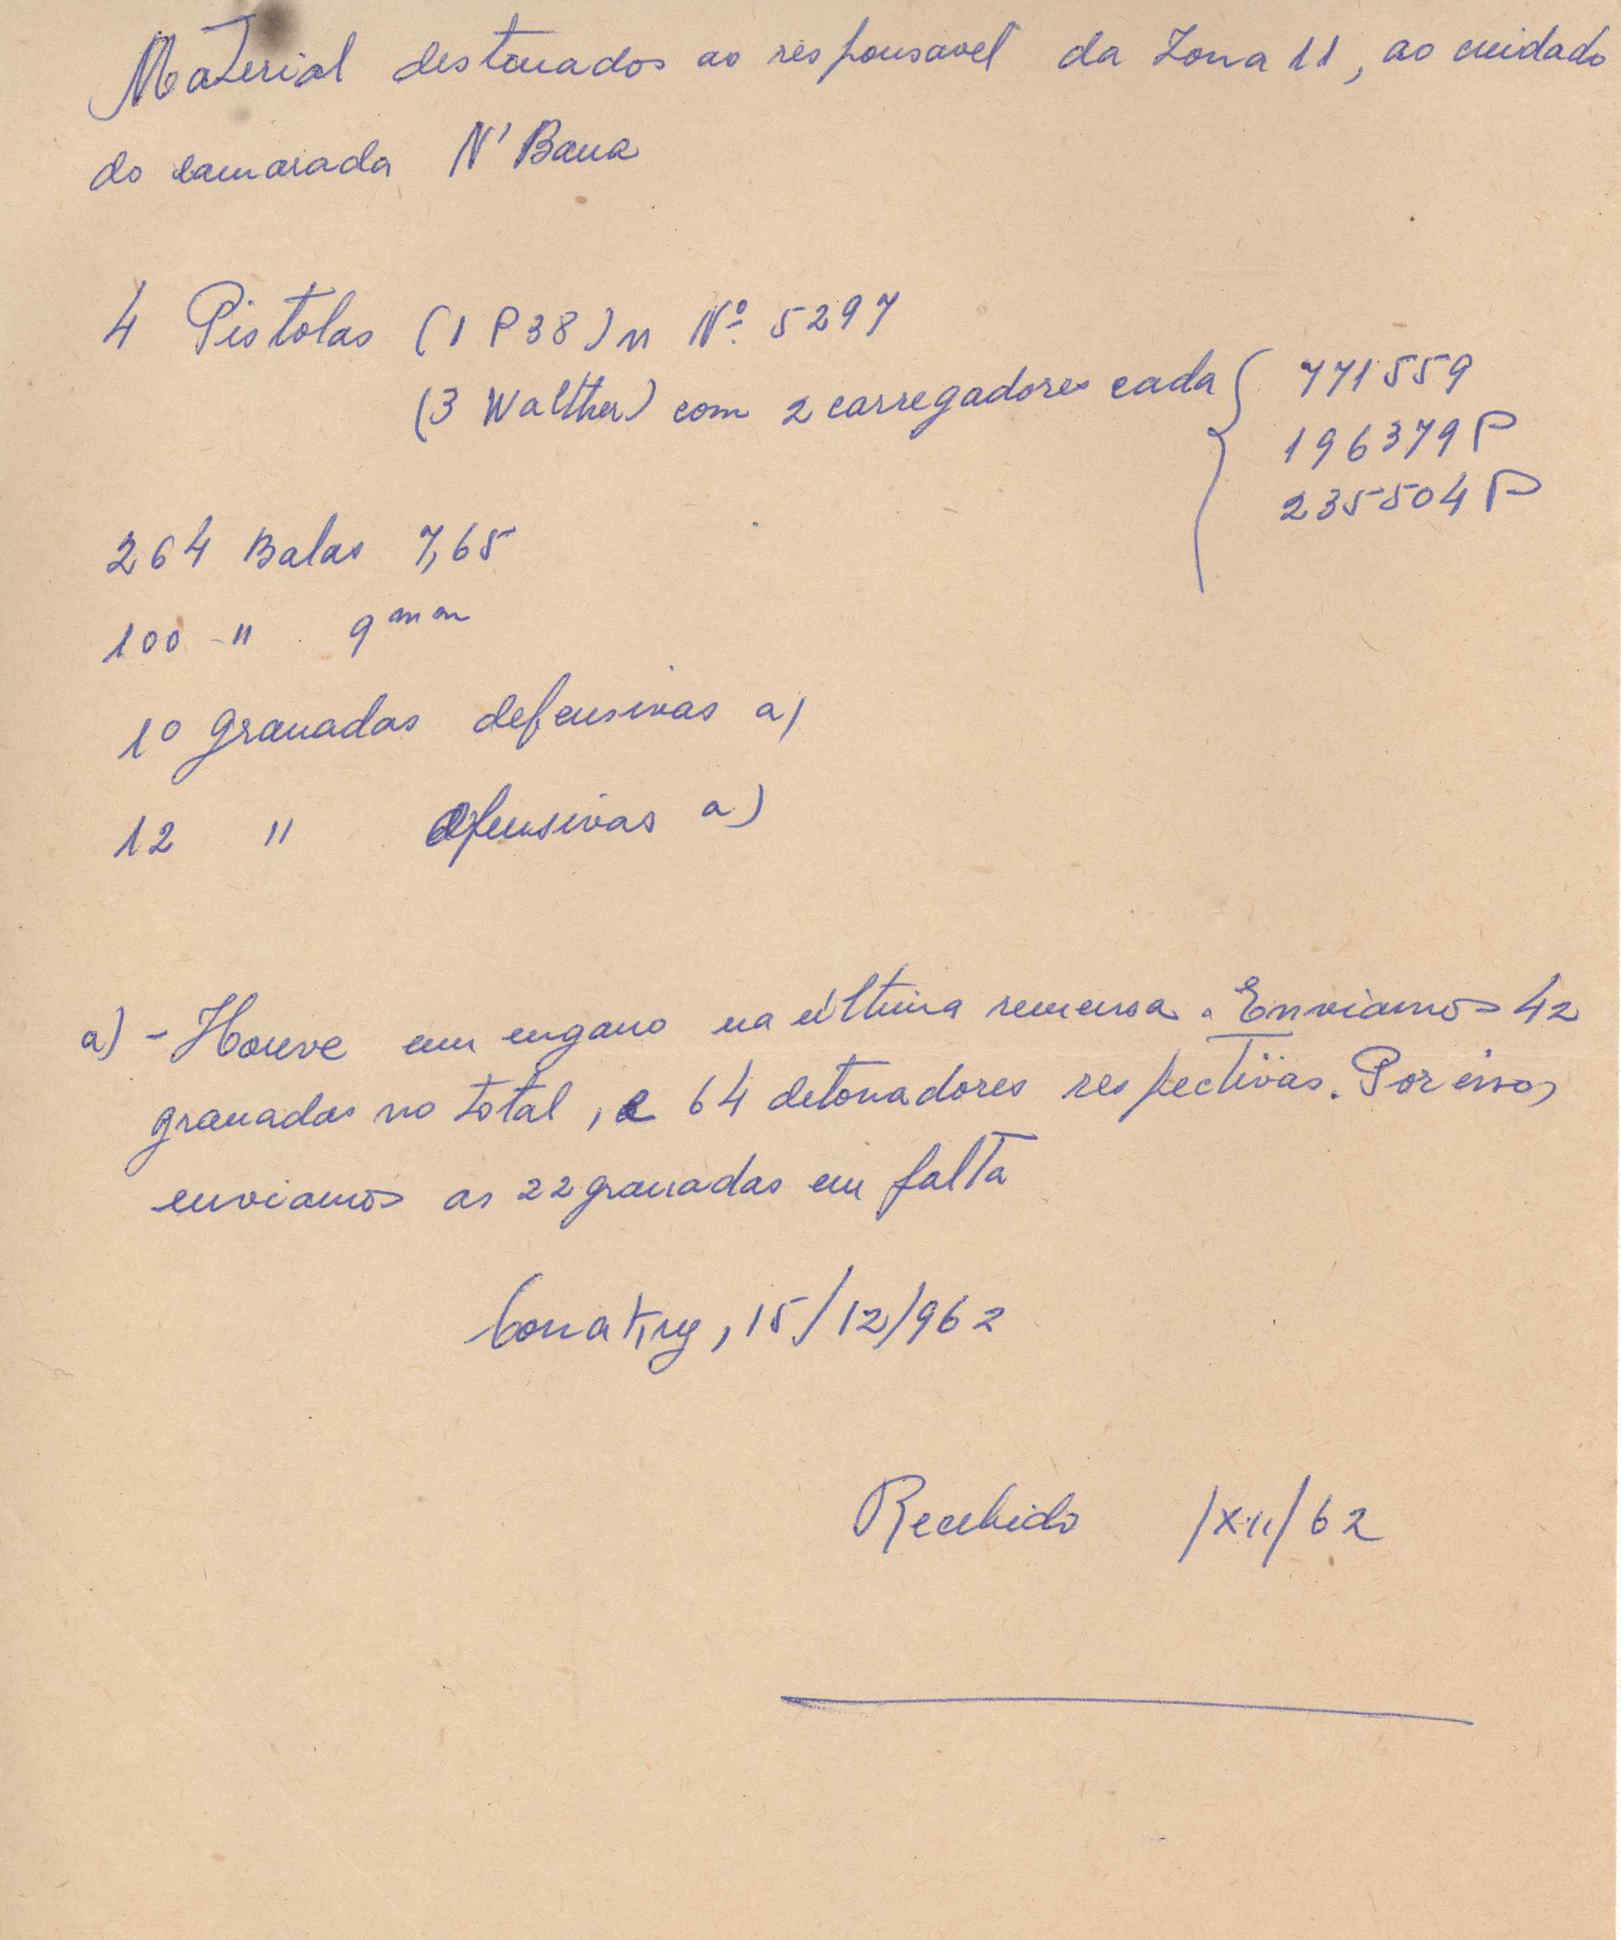 Material destinados ao responsavel da Zona 11, ao cuidado
do camarada N'Bana
4 Pistolas (1 P38) n Nº. 5297
(3 Walther) com 2 carregadores cada { 771559
196379P
235504P
264 Balas 7,65
100 -" 9mm
10 granadas defensivas a)
12 " ofensivas a)
a) - Houve um engano na última remensa. Enviamos 42
granadas no total, e 64 detonadores respectivas. Por isso,
enviamos as 22 granadas em falta
Conakry, 15/12/962
Recebido /XII/62